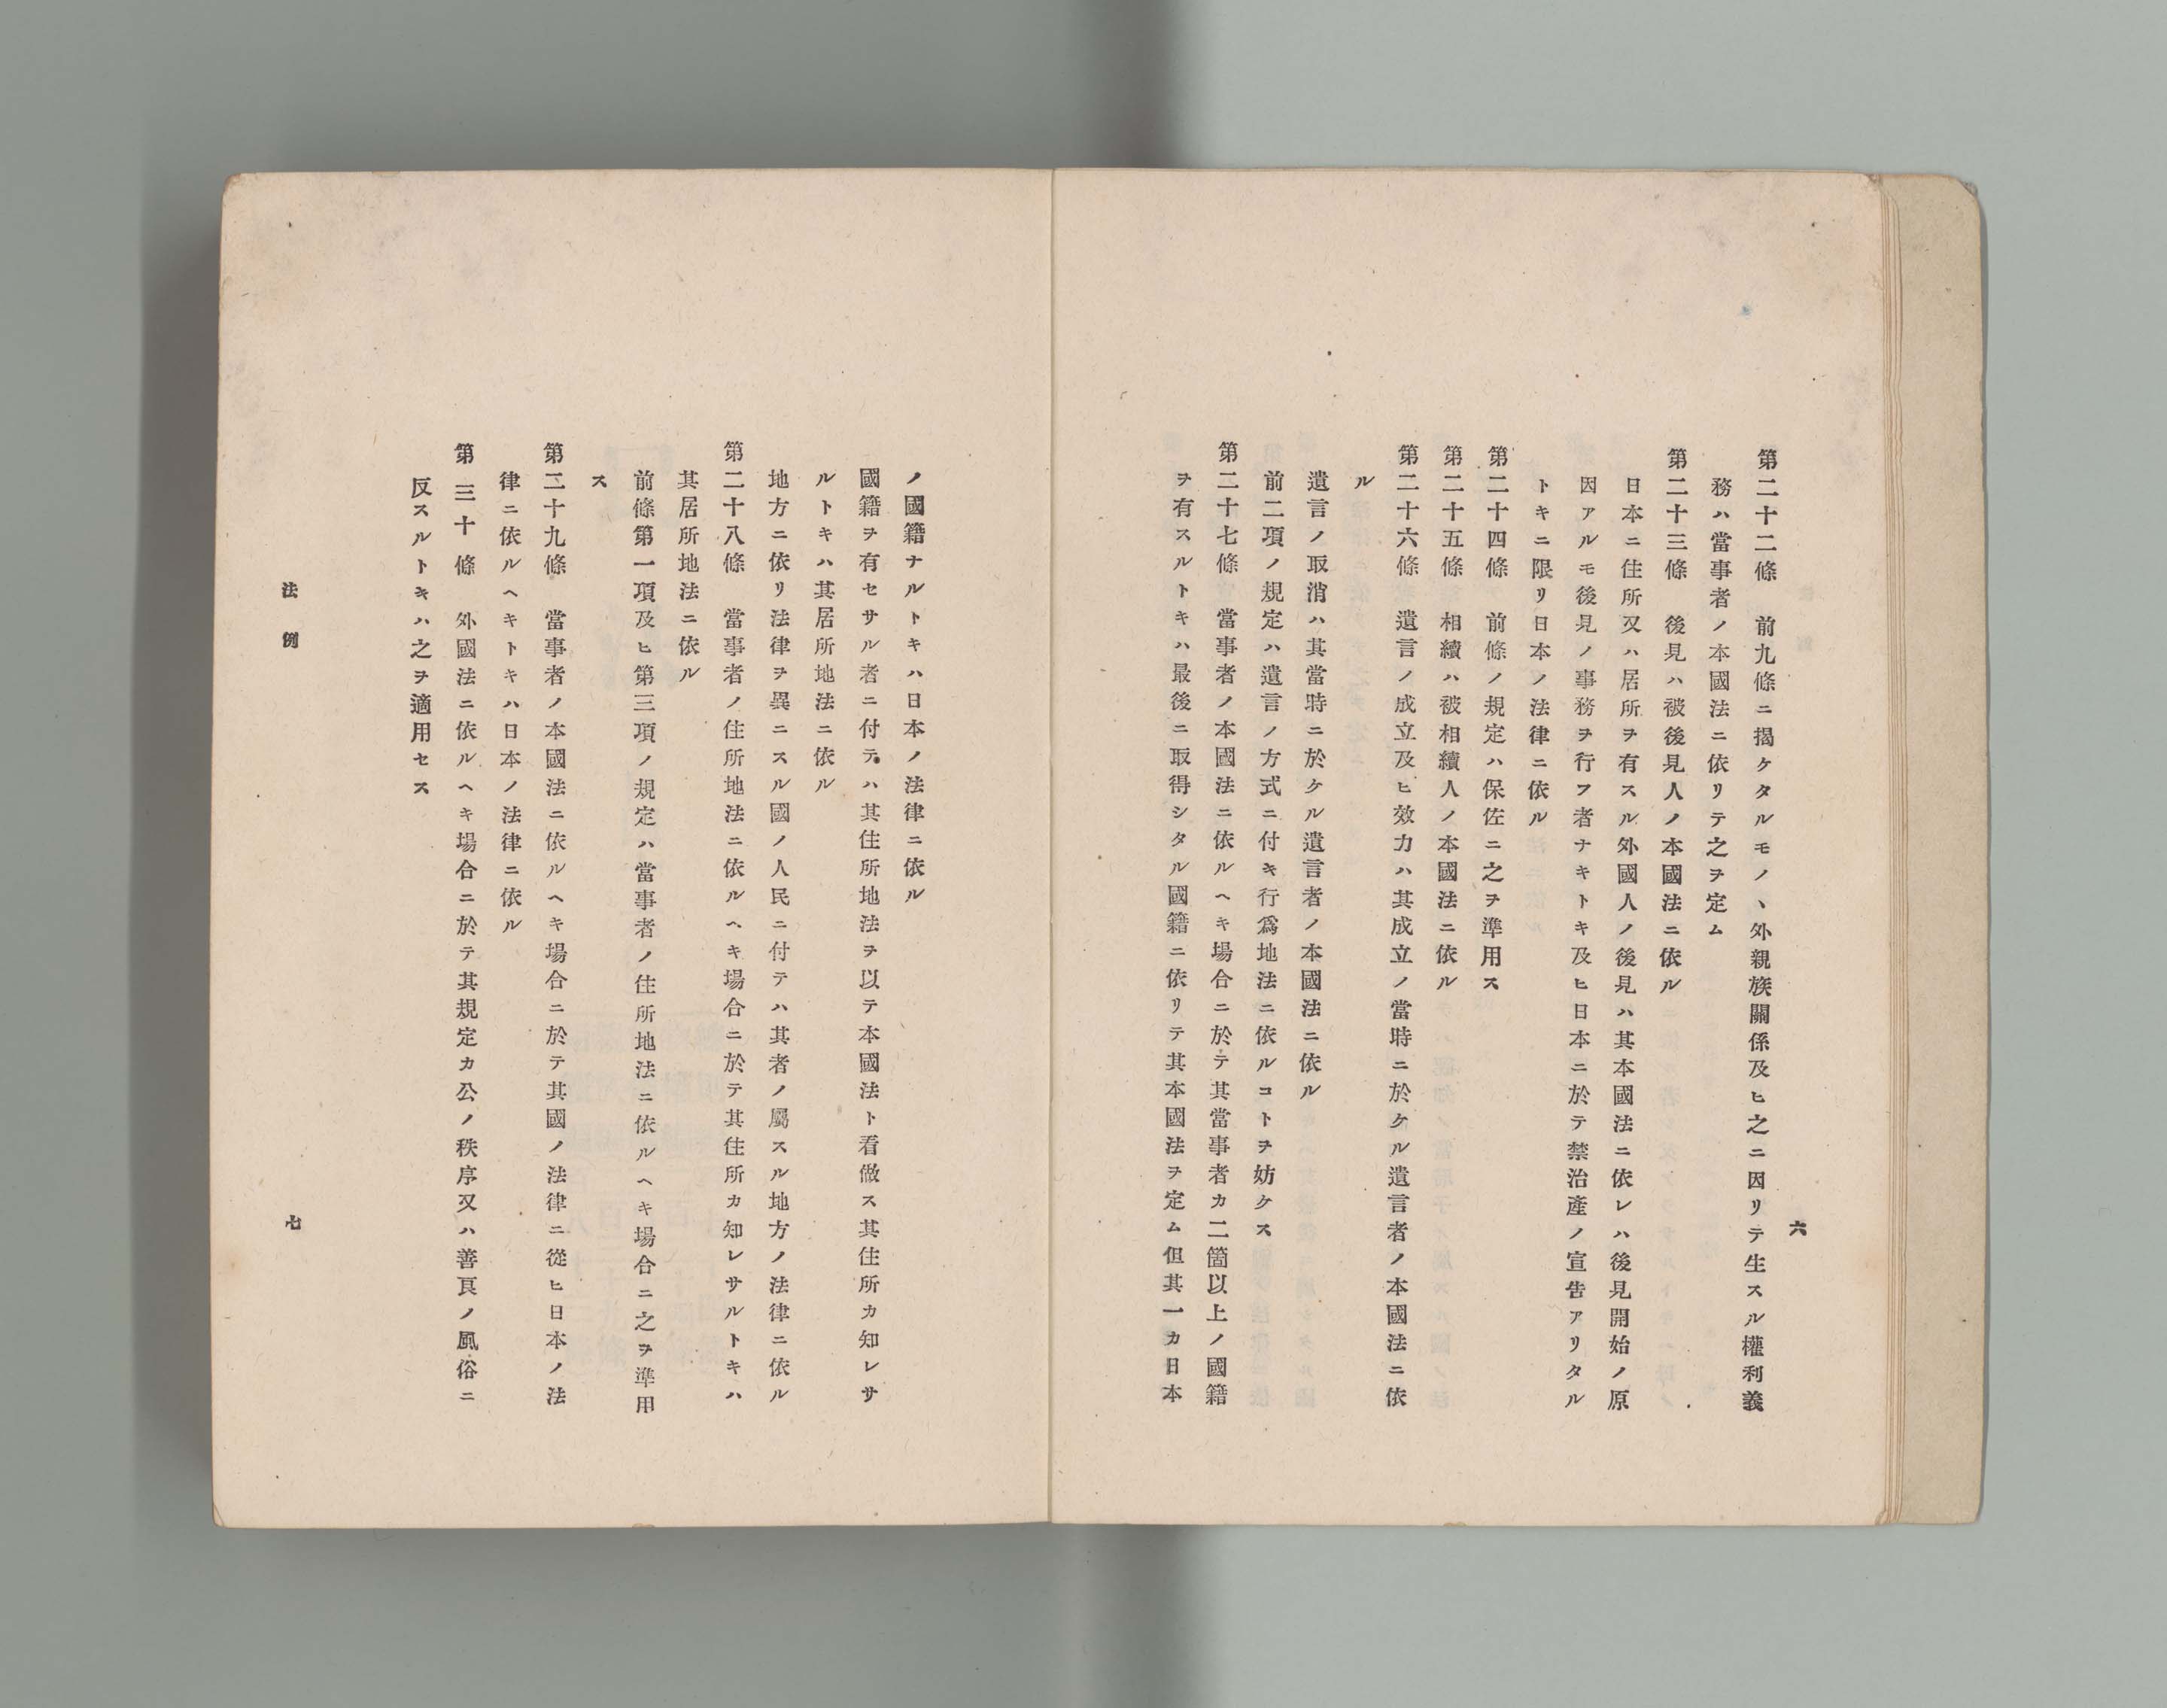 六
第二十二條　前九條ニ揭ケタルモノヽ外親族關係及ヒ之ニ因リテ生スル權利義
務ハ當事者ノ本國法ニ依リテ之ヲ定ム
第二十三條　後見ハ被後見人ノ本國法ニ依ル
日本ニ住所又ハ居所ヲ有スル外國人ノ後見ハ其本國法ニ依レハ後見開始ノ原
因アルモ後見ノ事務ヲ行フ者ナキトキ及ヒ日本ニ於テ禁治產ノ宣告アリタル
トキニ限リ日本ノ法律ニ依ル
第二十四條　前條ノ規定ハ保佐ニ之ヲ準用ス
第二十五條　相續ハ被相續人ノ本國法ニ依ル
第二十六條　遺言ノ成立及ヒ效力ハ其成立ノ當時ニ於ケル遺言者ノ本國法ニ依
ル
遺言ノ取消ハ其當時ニ於ケル遺言者ノ本國法ニ依ル
前二項ノ規定ハ遺言ノ方式ニ付キ行爲地法ニ依ルコトヲ妨ケス
第二十七條　當事者ノ本國法ニ依ルヘキ場合ニ於テ其當事者カ二箇以上ノ國籍
ヲ有スルトキハ最後ニ取得シタル國籍ニ依リテ其本國法ヲ定ム但其一カ日本
ノ國籍ナルトキハ日本ノ法律ニ依ル
國籍ヲ有セサル者ニ付テハ其住所地法ヲ以テ本國法ト看做ス其住所カ知レサ
ルトキハ其居所地法ニ依ル
地方ニ依リ法律ヲ異ニスル國ノ人民ニ付テハ其者ノ屬スル地方ノ法律ニ依ル
第二十八條　當事者ノ住所地法ニ依ルヘキ場合ニ於テ其住所カ知レサルトキハ
其居所地法ニ依ル
前條第一項及ヒ第三項ノ規定ハ當事者ノ住所地法ニ依ルヘキ場合ニ之ヲ準用
ス
第二十九條　當事者ノ本國法ニ依ルヘキ場合ニ於テ其國ノ法律ニ從ヒ日本ノ法
律ニ依ルヘキトキハ日本ノ法律ニ依ル
第三十條　外國法ニ依ルヘキ場合ニ於テ其規定カ公ノ秩序又ハ善良ノ風俗ニ
反スルトキハ之ヲ適用セス
法例
七